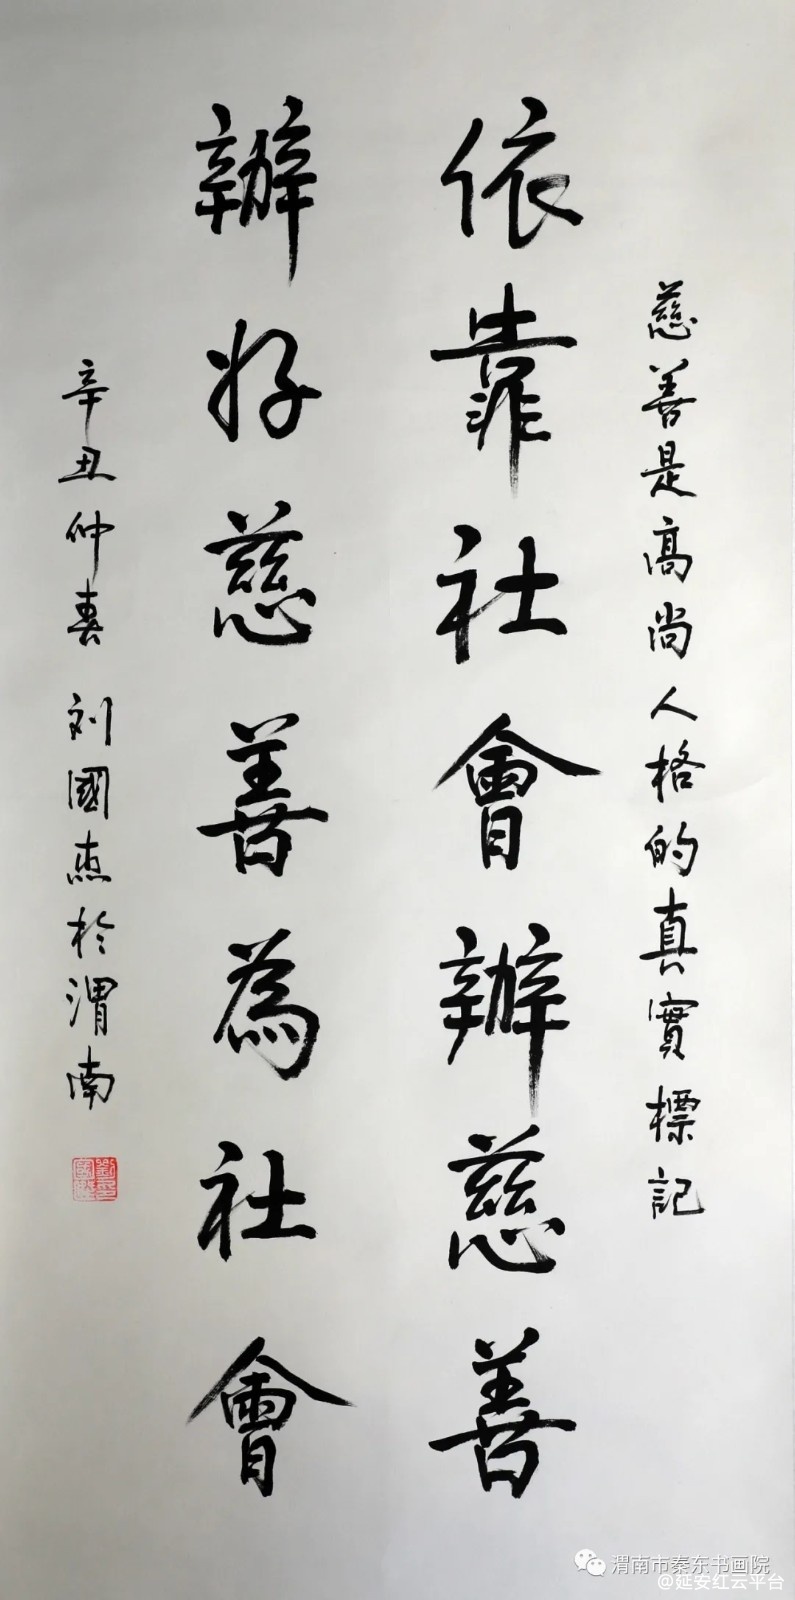 慈善是高尚人格的真實標記
依靠社會辦慈善
辦好慈善為社會
辛丑仲春 刘國杰於渭南
渭南市秦东书画院
@延安红云平台